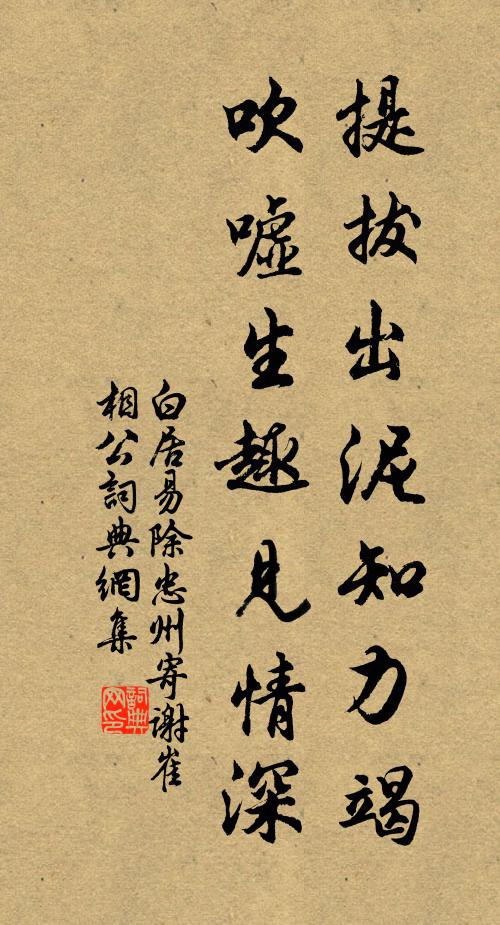 提拔出泥知力竭
吹嘘生趣見情深
白居易除忠州寄謝崔
相公詞典網集
詞典網印